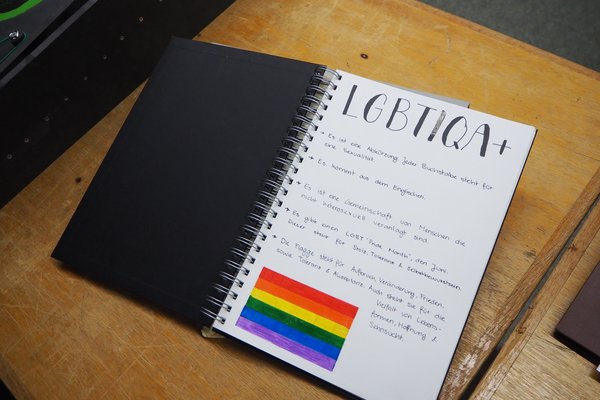 LGBTIQA+
→ Es ist eine Abkürzung. Jeder Buchstabe steht für
eine Sexualität.
→ Es kommt aus dem Englischen.
→ Es ist eine Gemeinschaft von Menschen die
nicht heterosexuell veranlagt sind.
→ Es gibt einen LGBT "Pride Month", den Juni.
Dieser steht für Stolz, Toleranz &
→ Die Flagge steht für Aufbruch, Veränderung, Frieden,
sowie Toleranz & Akzeptanz. Auch steht sie für die
Vielfalt von Lebens-
formen, Hoffnung &
Sehnsucht.